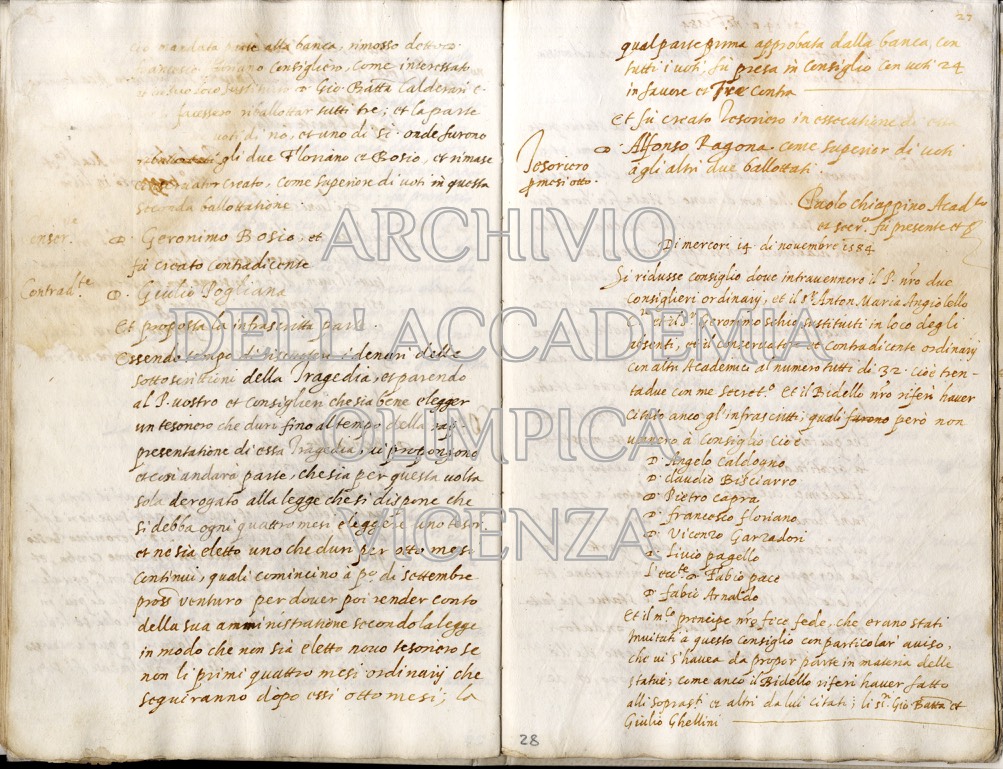 mandata parte alla banca, rimosso detto D.
Consigliero, come interessato
Gio: Batta Calderari e
facessero riballottar tutti tre; et la parte
voti di no, et uno di si. onde furono
gli due Floriano et Bosio, et rimase
creato, come superiore di voti in questa
seconda ballottatione.
D. Geronimo Bosio, et
fù creato contradicente
Contrad.te D. Giulio Pogliana
Et proposta la infrascritta parte.
Essendo tempo di riscuoter i denari delle
sottoscrittioni della Tragedia, et parendo
al P. vostro et Consiglieri che sia bene elegger
un tesoriero che duri fino al tempo della rap-
presentatione di essa Tragedia, vi propongono
et così andarà parte, che sia per questa volta
sola derogato alla legge che si dispone che
si debba ogni quattro mesi eleggere uno tesor.
et ne sia eletto uno che duri per otto mesi
continui, quali comincino à p.o di settembre
pross.o venturo per dover poi render conto
della sua amministratione secondo la legge
in modo che non sia eletto novo tesoriero se
non li primi quattro mesi ordinarij che
seguiranno dopo essi otto mesi; la
27
qual parte prima approbata dalla banca con
tutti i voti, fù presa in Consiglio con voti 24
in favore et Tre contra
Et fù creato Tesoriero in essecutione di
Tesoriero
p mesi otto.
D. Alfonso Ragona. come superior di voti
agli altri due ballottati.
Paolo Chiappino Acad.co
et secr.o fù presente et
Di mercore 14 di novembre 1584
Si ridusse consiglio dove intravennero il P. nro due
Consiglieri ordinarij, et il s.r Anton Maria Angiolello
et il s.r Geronimo schio sustituiti in loco degli
absenti, et il conservator et contradicente ordinarij
con altri Academici al numero tutti di 32. cioè tren-
tadue con me secret.o Et il Bidello nro riferì haver
citato anco gl'infrascritti; quali furono però non
vennero à consiglio cioè
D. Angelo Caldogno
D. Claudio Bisciarro
D. Pietro Capra
D. Francesco floriano
D. Vicenzo Garzadori
D. Livio pagello
L'ecc.te D. Fabio pace
D. fabio Arnaldo
Et il m.co prencipe nro fice fede, che erano stati
invitati à questo consiglio con particolar aviso,
che vi s'havea da propor parte in materia delle
statue; come anco il Bidello riferì haver fatto
alli soprast.i et altri da lui citati; li s.ri Gio: Batta et
Giulio Ghellini
28
ARCHIVIO
DELL'ACCADEMIA
OLIMPICA
VICENZA